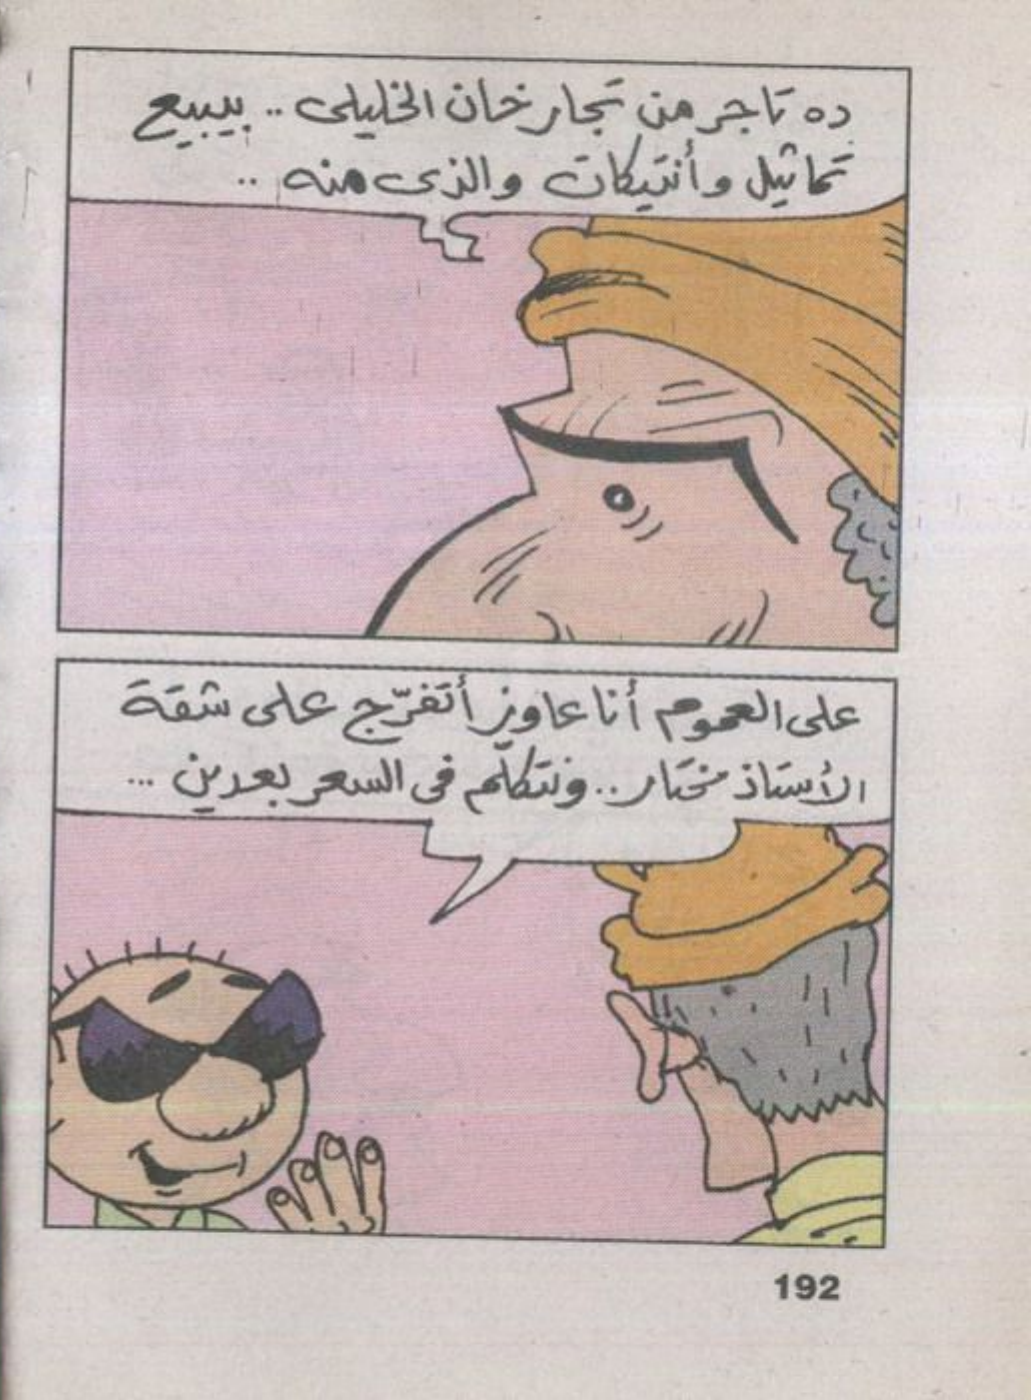 ده تاجر من تجار خان الخليلى .. بيبيع
تماثيل وأنتيكات والذى منه ..
على العموم أنا عاوز أتفرّج على شقة
الأستاذ مختار .. ونتكلّم فى السعر بعدين ...
192